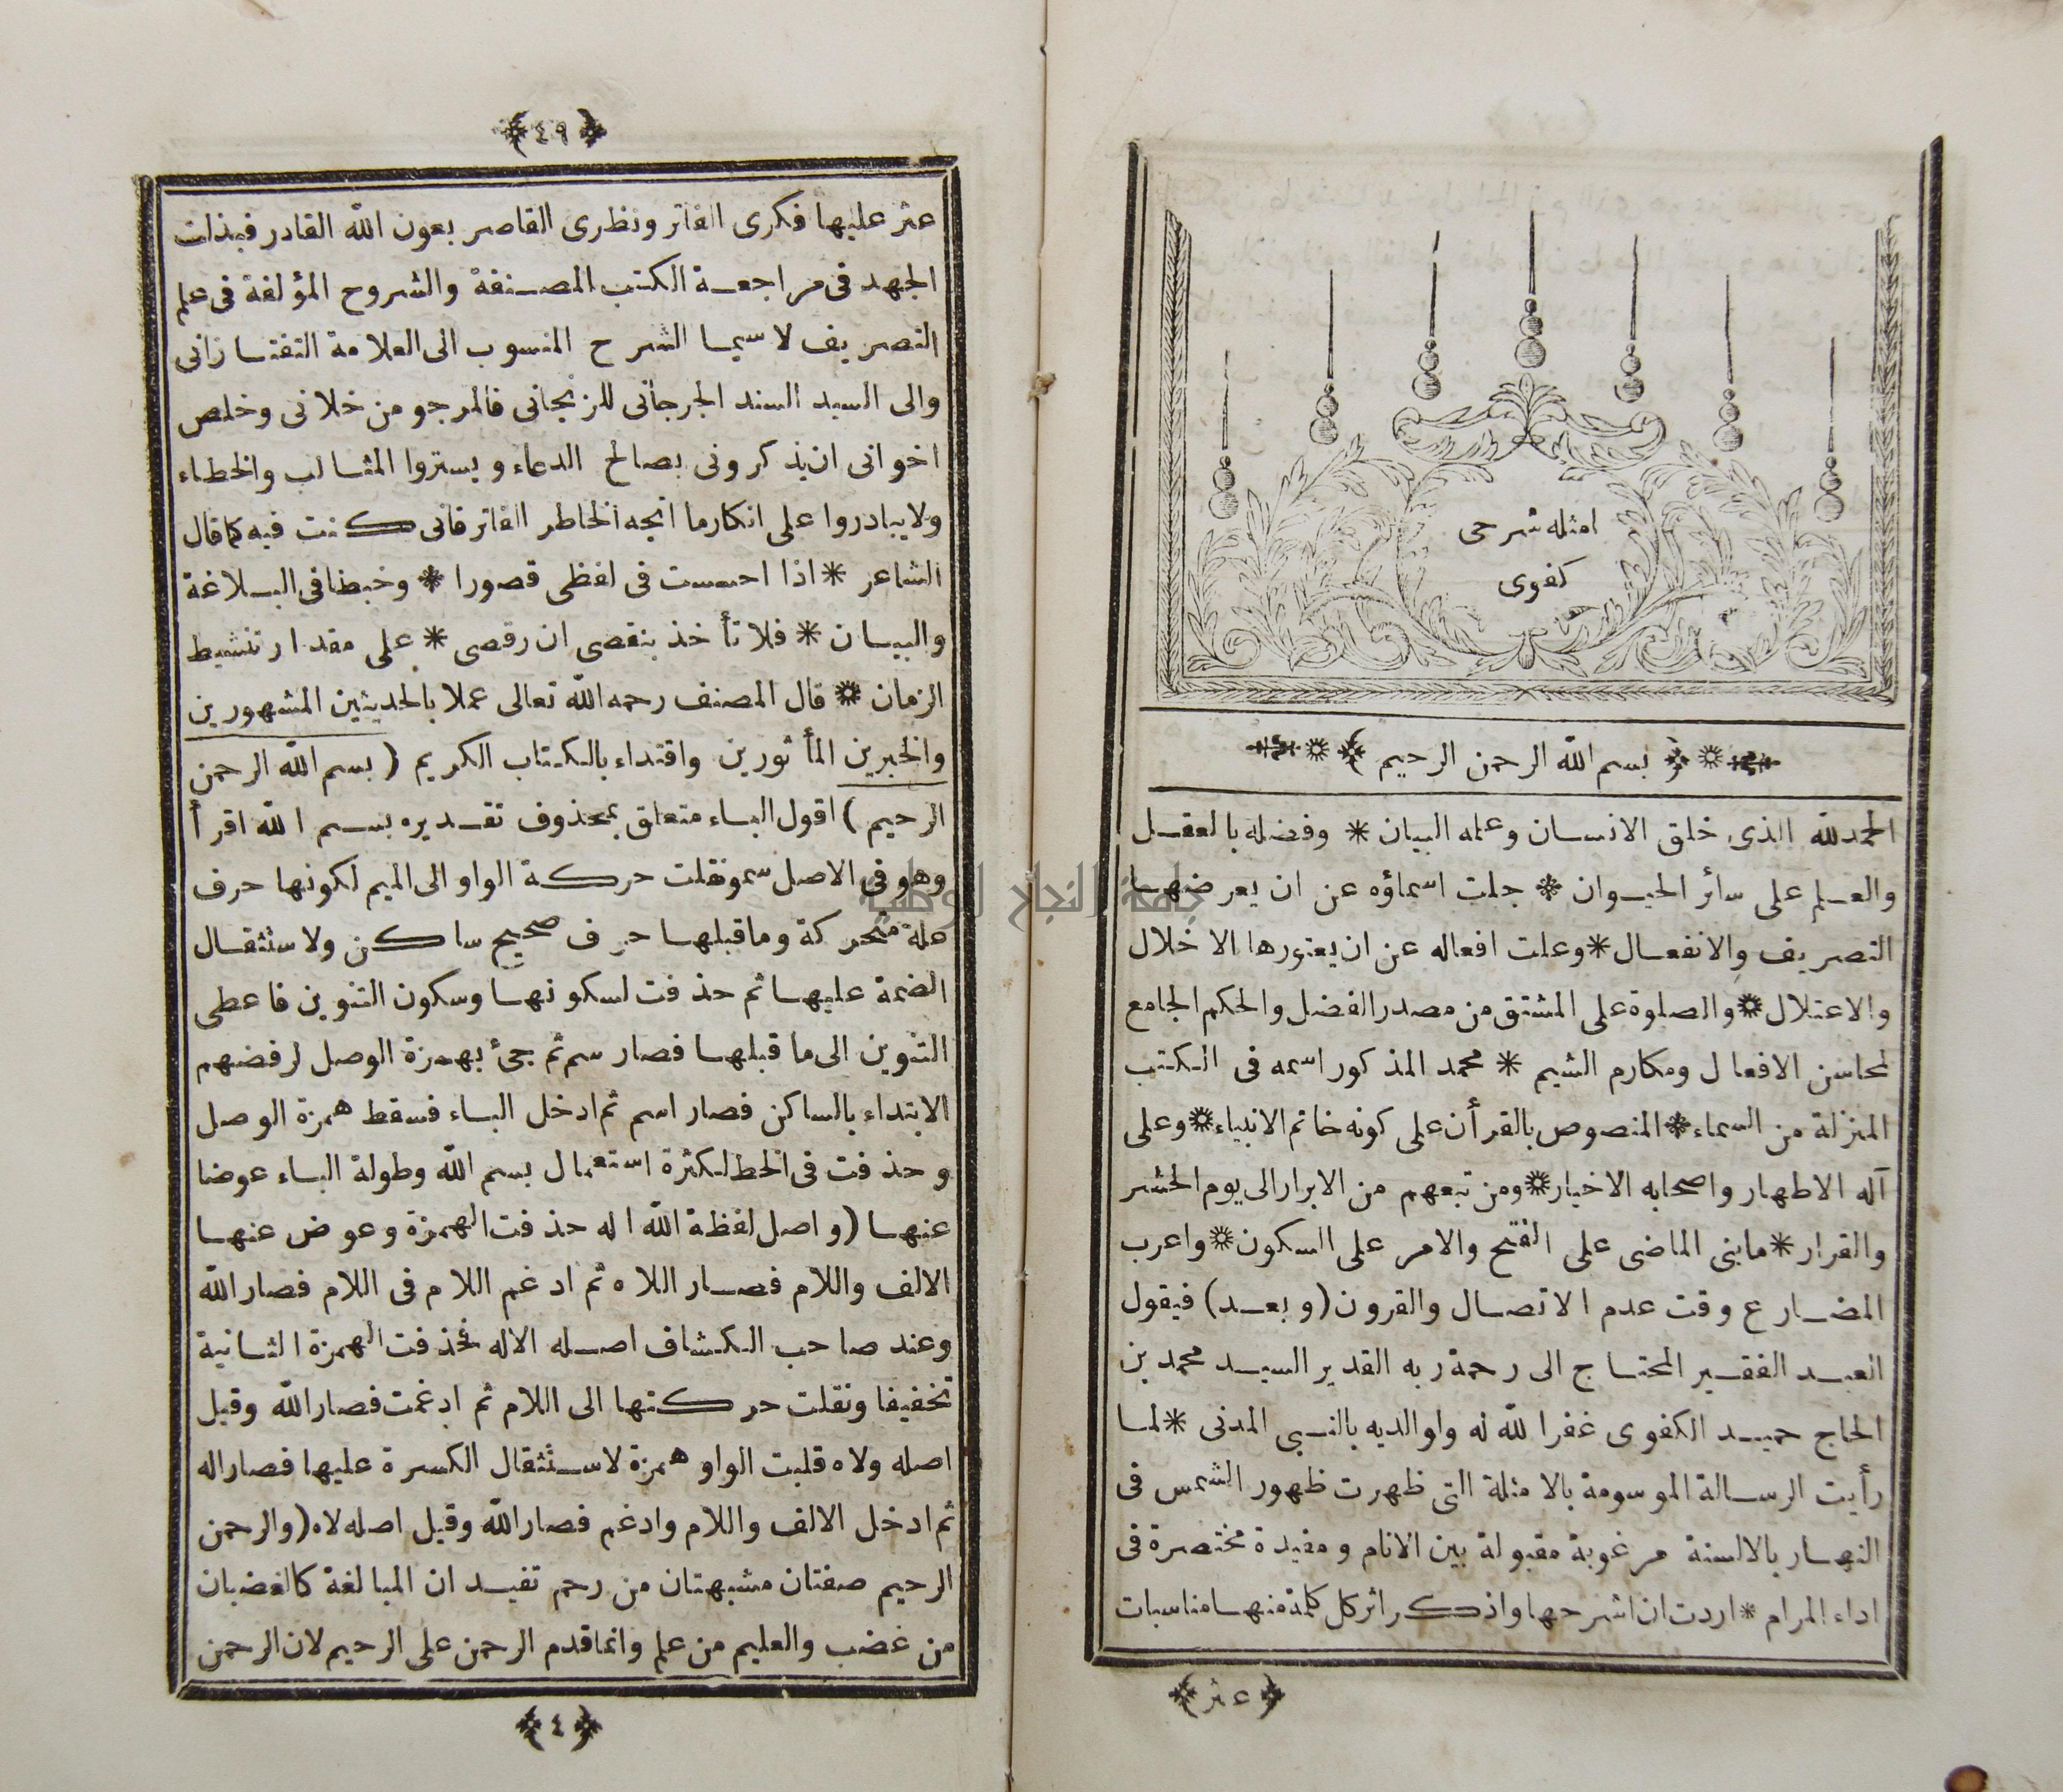 امثله شرحى
كفوى
بسم الله الرحمن الرحيم
الحمدلله الذى خلق الانسان وعلمه البيان * وفضله بالعقل
والعلم على سائر الحيوان * جلت اسماؤه عن ان يعرضها
التصريف والانفعال * وعلت افعاله عن ان يعتورها الاخلال
والاعتلال * والصلوة على المشتق من مصدر الفضل والحكم الجامع
لمحاسن الافعال ومكارم الشيم * محمد المذكور اسمه فى الكتب
المنزلة من السماء * المنصوص بالقرأن على كونه خاتم الانبياء * وعلى
آله الاطهار واصحابه الاخيار * ومن تبعهم من الابرار الى يوم الحشر
والقرار * مابنى الماضى على الفتح والامر على السكون * واعرب
المضارع وقت عدم الاتصال والقرون (وبعد) فيقول
العبد الفقير المحتاج الى رحمة ربه القدير السيد محمد بن
الحاج حميد الكفوى غفر الله له ولوالديه بالنبى المدنى * لما
رأيت الرسالة الموسومة بالامثلة التى ظهرت ظهور الشمس فى
النهار بالالسنة مرغوبة مقبولة بين الانام ومفيدة مختصرة فى
اداء المرام * اردت ان اشرحها واذكر اثر كل كلمة منها مناسبات
عثر
٤٩
عثر عليها فكرى الفاتر ونظرى القاصر بعون الله القادر فبذلت
الجهد فى مراجعة الكتب المصنفة والشروح المؤلفة فى علم
التصريف لاسيما الشرح المنسوب الى العلامة التفتازانى
والى السيد السند الجرجانى للزنجانى فالمرجو من خلانى وخلص
اخوانى ان يذكرونى بصالح الدعاء ويستروا المثالب والخطاء
ولايبادروا على انكار ما انتجه الخاطر الفاتر فانى كنت فيه كما قال
الشاعر * اذا احسست فى لفظى قصورا * وخبطا فى البلاغة
والبيان * فلا تأخذ بنقصى ان رقصى * على مقدار تنشيط
الزمان * قال المصنف رحمه الله تعالى عملا بالحديثين المشهورين
والخبرين المأثورين واقتداء بالكتاب الكريم (بسم الله الرحمن
الرحيم) اقول الباء متعلق بمحذوف تقديره بسم الله اقرأ
وهو فى الاصل سمو نقلت حركة الواو الى الميم لكونها حرف
علة متحركة وماقبلها حرف صحيح ساكن ولاستثقال
الضمة عليها ثم حذفت لسكونها وسكون التنوين فاعطى
التنوين الى ما قبلها فصار سم ثم جئ بهمزة الوصل لرفضهم
الابتداء بالساكن فصار اسم ثم ادخل الباء فسقط همزة الوصل
وحذفت فى الخط لكثرة استعمال بسم الله وطولة الباء عوضا
عنها (واصل لفظة الله اله حذفت الهمزة وعوض عنها
الالف واللام فصار اللاه ثم ادغم اللام فى اللام فصار الله
وعند صاحب الكشاف اصله الاله فحذفت الهمزة الثانية
تخفيفا ونقلت حركتها الى اللام ثم ادغمت فصار الله وقيل
اصله ولاه قلبت الواو همزة لاستثقال الكسرة عليها فصار اله
ثم ادخل الالف واللام وادغم فصار الله وقيل اصله لاه (والرحمن
الرحيم صفتان مشبهتان من رحم تفيدان المبالغة كالغضبان
من غضب والعليم من علم وانما قدم الرحمن على الرحيم لان الرحمن
٤
جامعة النجاح الوطنية